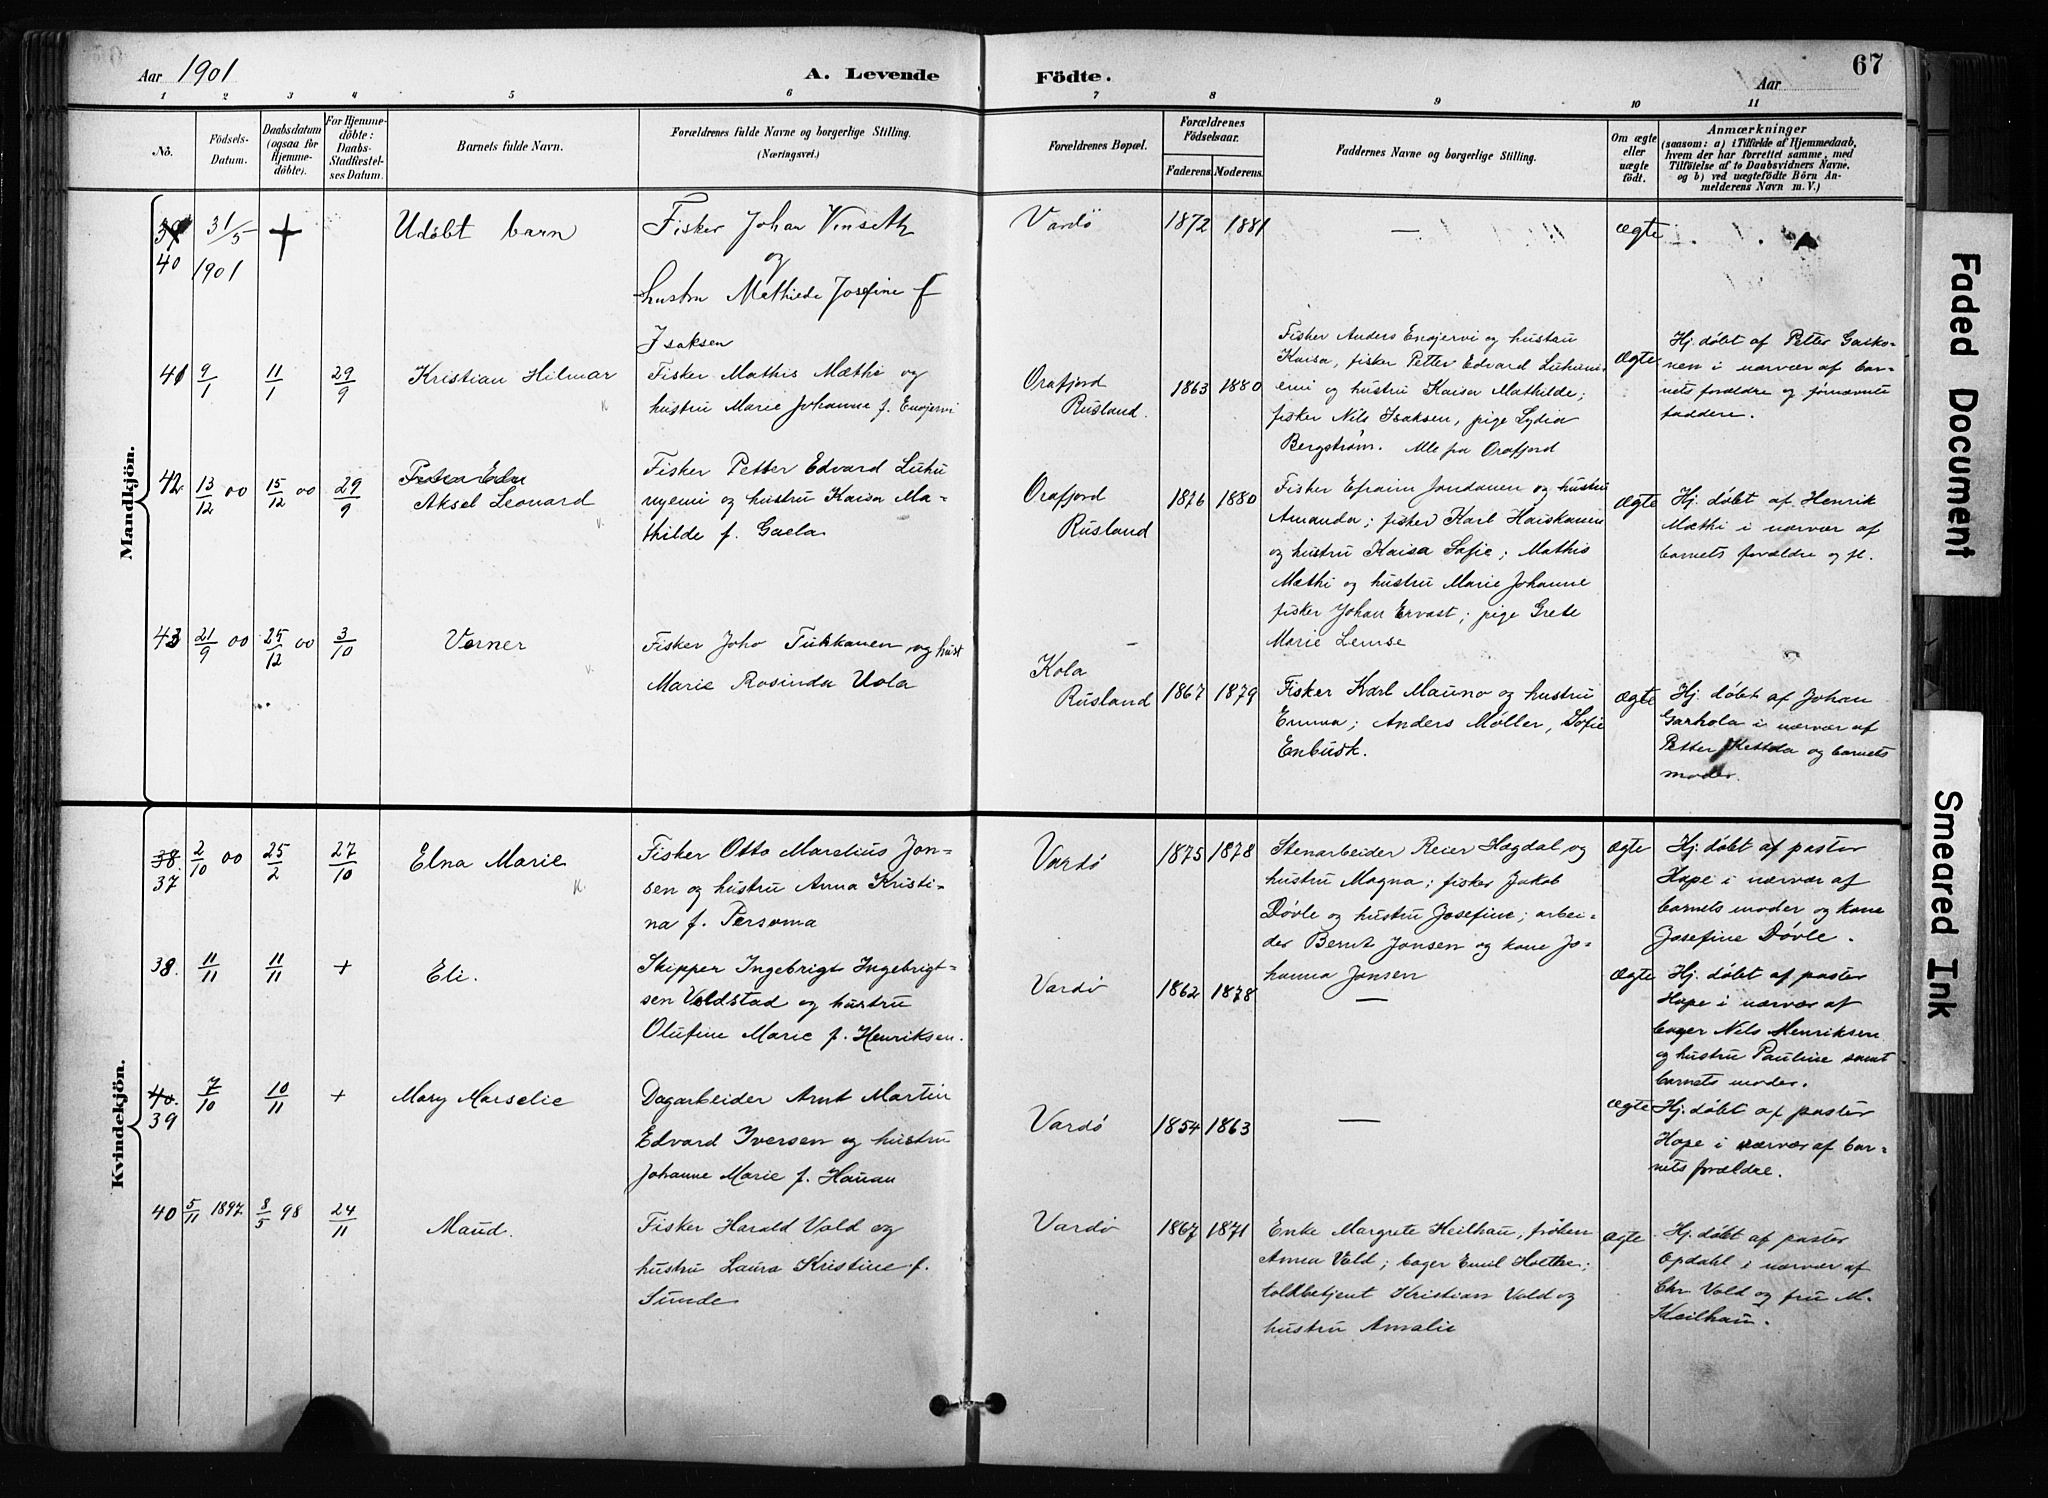 Aar 1901
A. Levende
Födte.
Aar
67
1 2 3 4 5 6 7 8 9 10 11
No.
Födsels-
Datum.
Daabsdatum
(ogsaa for
Hjemme-
döbte).
For Hjemme-
döbte:
Daabs-
Stadfæstel-
ses Datum.
Barnets fulde Navn.
Forældrenes fulde Navne og borgerlige Stilling.
(Næringsvei.)
Forældrenes Bopæl.
Forældrenes
Födselsaar.
Faderens. Moderens.
Faddernes Navne og borgerlige Stilling.
Om ægte
eller
uægte
födt.
Anmærkninger
(saasom: a) i Tilfælde af Hjemmedaab,
hvem der har forrettet samme, med
Tilföielse af to Daabsvidners Navne,
og b) ved uægtefödte Börn An-
melderens Navn m. V.)
Mandkjön.
39
40
31/5
1901
+
Udöbt barn
Fisker Johan Vinseth
og
hustru Mathilde Josefine f
Isaksen
Vardö
1872 1881
—
ægte
41
9/1
11/1
29/9
Kristian Hilmar
Fisker Mathis Mæthi og
hustru Marie Johanne f. Enojervi
Orafjord
Rusland.
1863 1880
Fisker Anders Enojervi og hustru
Kaisa, fisker Petter Edvard Luhuni-
emi og hustru Kaisa Mathilde;
fisker Nils Isaksen, pige Lydia
Bergström. Alle fra Orafjord
Ægte
Hj. döbt af Petter Gasko-
nen i nærvær af bar-
nets forældre og förnævnte
faddere.
42
13/12 00
15/12 00
29/9
Aksel Leonard
Fisker Petter Edvard Luhu
nyemi og hustru Kaisa Ma-
thilde f. Gaela
Orafjord
Rusland
1876 1880
Fisker Efraim Jondanen og hustru
Amanda; fisker Karl Haiskanen
og hustru Kaisa Sofie; Mathis
Mæthi og hustru Marie Johanne
fisker Johan Ervast; pige Grete
Marie Lemse
Ægte
Hj. döbt af Henrik
Mæthi i nærvær af
barnets forældre og fl.
43
21/9 00
25/12 00
3/10
Verner
Fisker Joho Tukkanen og hust
Marie Rosinda Uola
Kola
Rusland
1867 1879
Fisker Karl Mauno og hustru
Emma; Anders Möller, Sofie
Enbusk.
Ægte
Hj. döbt af Johan
Garhola i nærvær af
Petter Kettola og barnets
moder.
Kvindekjön.
38.
37
2/10 00
25/2
27/10
Elna Marie
Fisker Otto Marelius Jon-
sen og hustru Anna Kristi-
na f. Persoma
Vardö
1875 1878
Stenarbeider Reier Hægdal og
hustru Magna; fisker Jakob
Dövle og hustru Josefine; arbei-
der Bernt Jonsen og kone Jo-
hanna Jonsen
Ægte
Hj. döbt af pastor
Hope i nærvær af
barnets moder og kone
Josefine Dövle.
38.
11/11
11/11
+
Eli.
Skipper Ingebrigt Ingebrigt-
sen Voldstad og hustru
Olufine Marie f. Henriksen.
Vardö
1862 1878
—
Ægte
Hj. döbt af pastor
Hope i nærvær af
bager Nils Henriksen
og hustru Pauline samt
barnets moder.
40.
39
7/10
10/11
+
Mary Marselie
Dagarbeider Arnt Martin
Edvard Iversen og hustru
Johanne Marie f. Hauan
Vardö
1854 1863
—
Ægte
Hj. döbt af pastor
Hope i nærvær af bar-
nets forældre.
40
5/11 1897
8/5 98
24/11
Maud.
Fisker Harald Vold og
hustru Laura Kristine f.
Sunde
Vardö
1867 1871
Enke Margrete Keilhau, fröken
Anna Vold; bager Emil Holthe;
toldbetjent Kristian Vold og
hustru Amalie
Ægte
Hj. döbt af pastor
Opdahl i nærvær af
Chr Vold og fru M.
Keilhau.
Faded Document
Smeared Ink